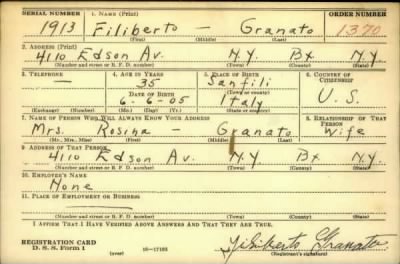 SERIAL NUMBER 1. NAME (Print) ORDER NUMBER
1913 Filiberto - Granato 1370
(First) (Middle) (Last)
2. ADDRESS (Print)
4110 Edson Av. N.Y. Bx N.Y.
(Number and street or R. F. D. number) (Town) (County) (State)
3. TELEPHONE 4. AGE IN YEARS 5. PLACE OF BIRTH 6. COUNTRY OF CITIZENSHIP
- 35 Sanfili
DATE OF BIRTH (Town or county)
6-6-05 Italy U.S.
(Exchange) (Number) (Mo.) (Day) (Yr.) (State or country)
7. NAME OF PERSON WHO WILL ALWAYS KNOW YOUR ADDRESS 8. RELATIONSHIP OF THAT PERSON
Mrs. Rosina - Granato Wife
(Mr., Mrs., Miss) (First) (Middle) (Last)
9. ADDRESS OF THAT PERSON
4110 Edson Av. N.Y Bx N.Y.
(Number and street or R. F. D. number) (Town) (County) (State)
10. EMPLOYER'S NAME
None
11. PLACE OF EMPLOYMENT OR BUSINESS
-
(Number and street or R. F. D. number) (Town) (County) (State)
I AFFIRM THAT I HAVE VERIFIED ABOVE ANSWERS AND THAT THEY ARE TRUE.
REGISTRATION CARD
D. S. S. Form 1 (over) 16-17105 Filiberto Granato
(Registrant's signature)